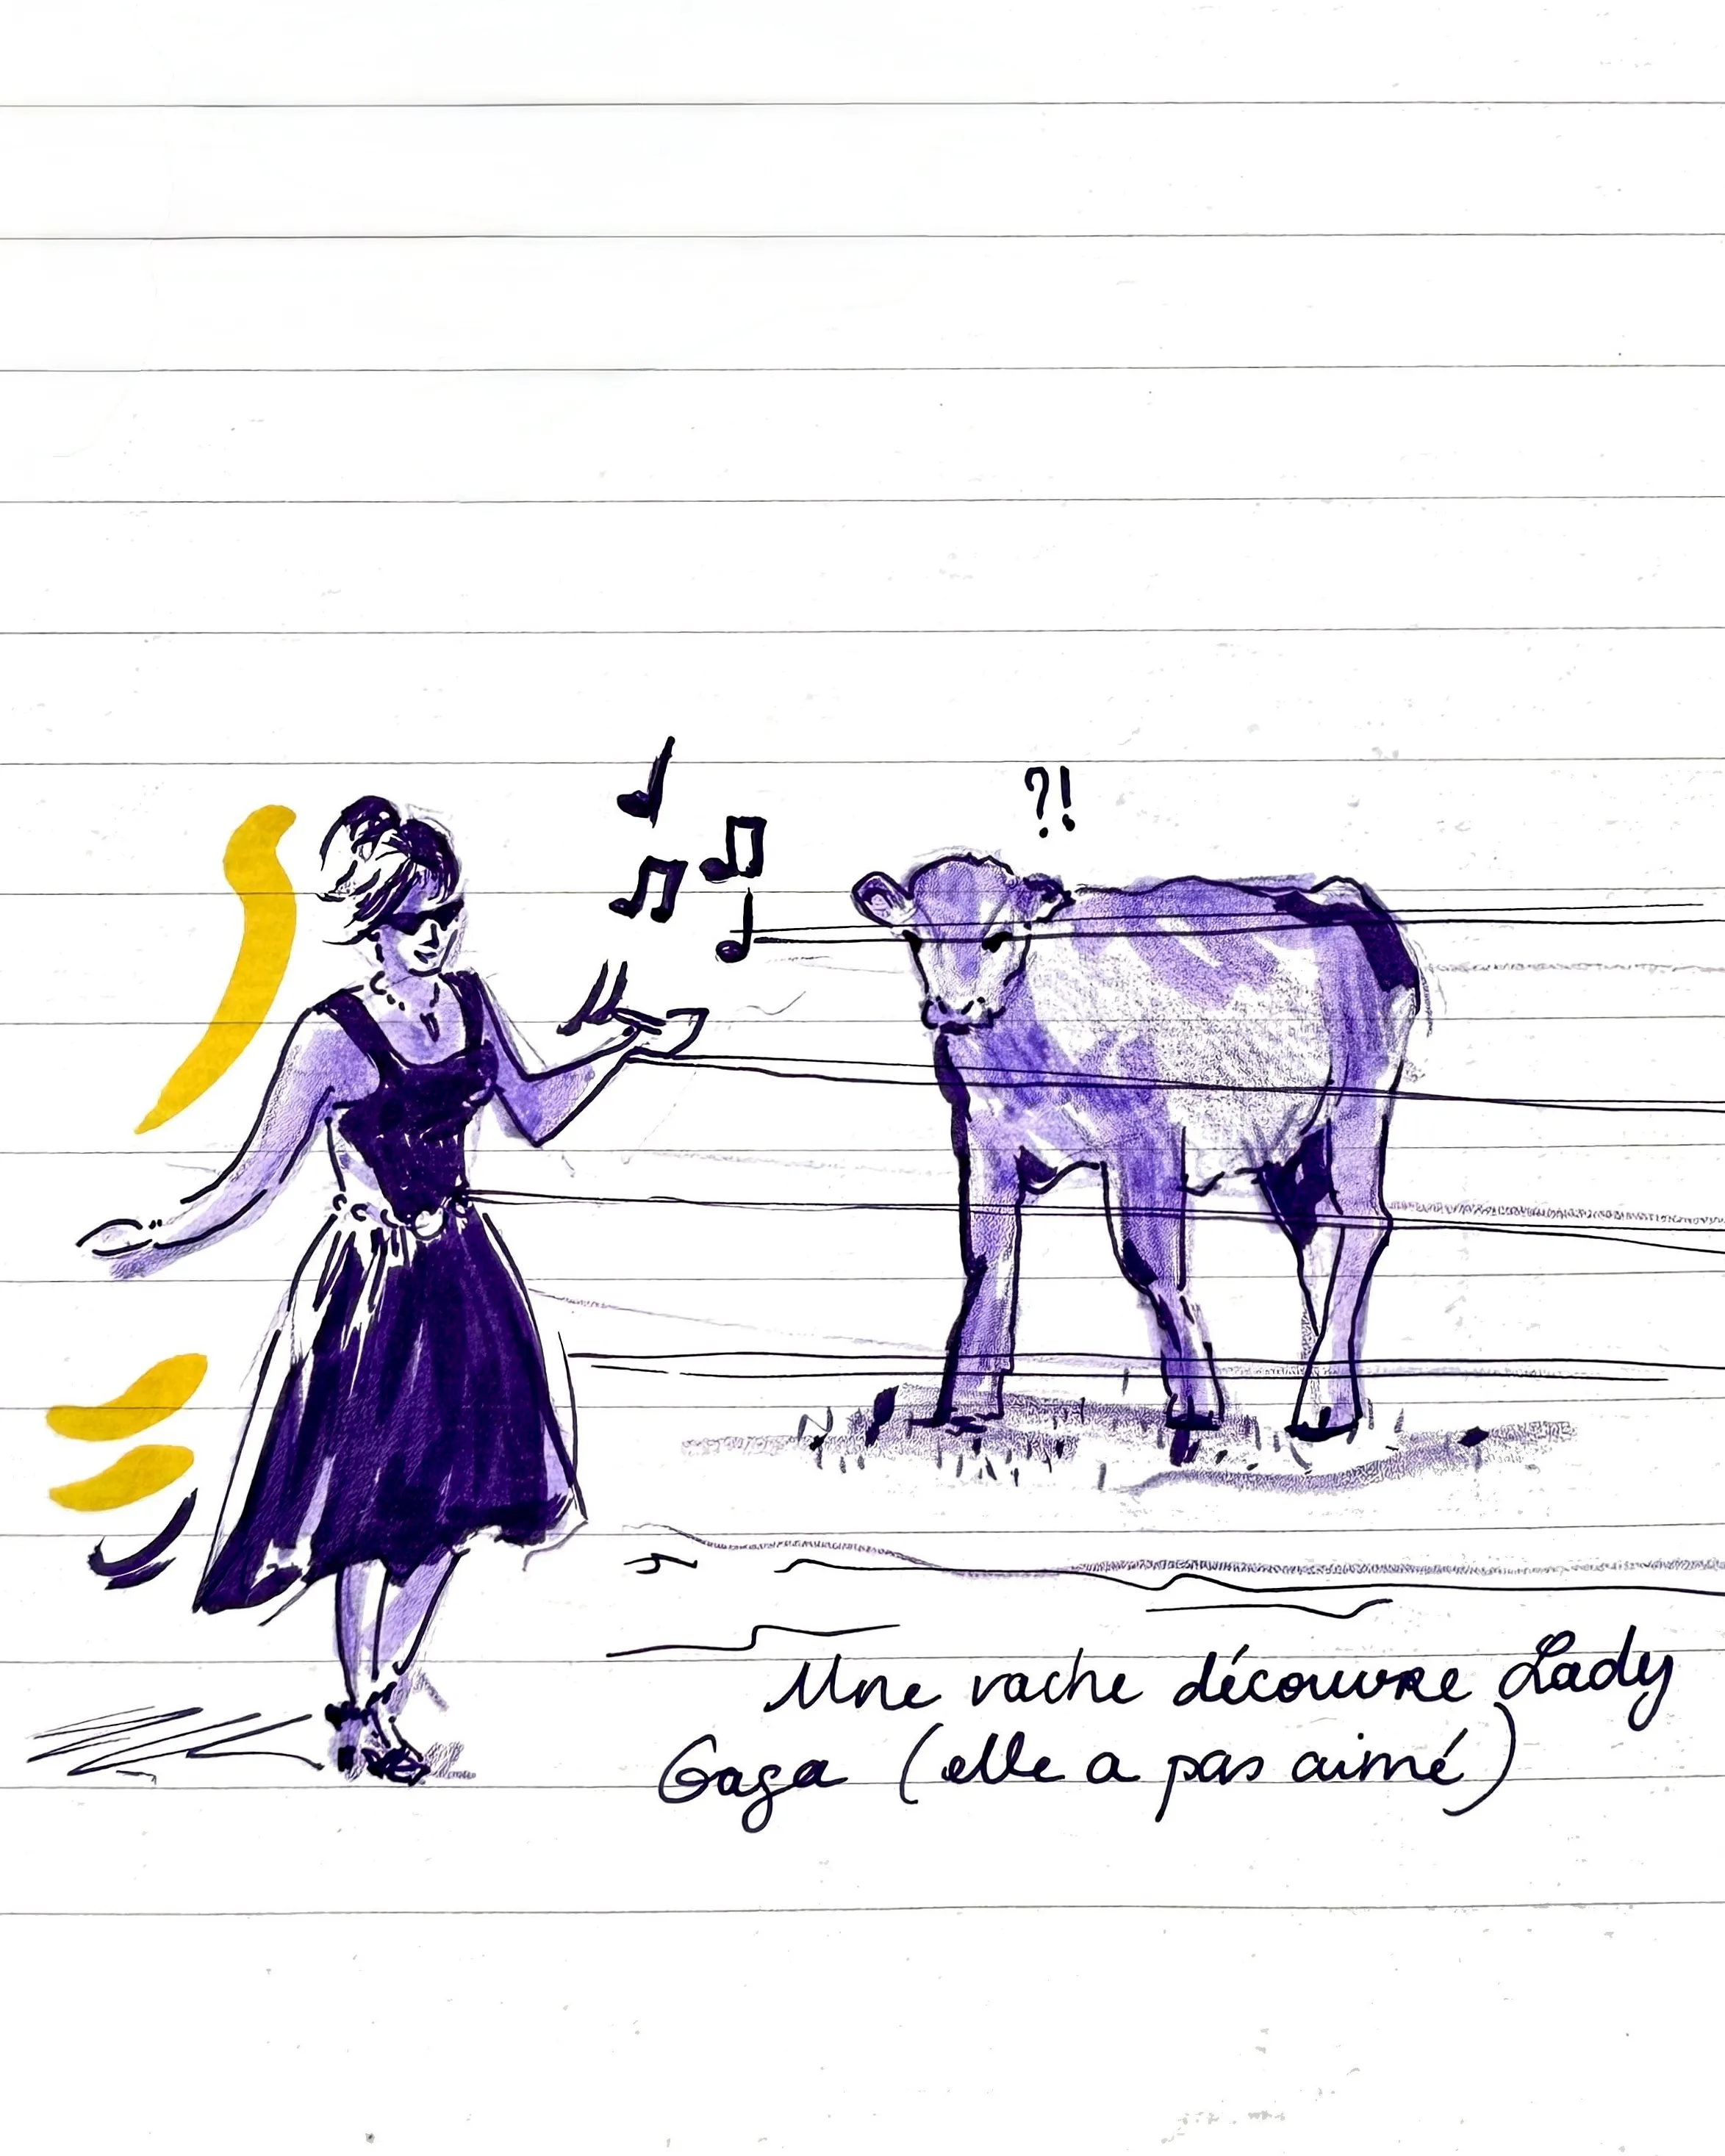 ?!
Une vache découvre Lady
Gaga (elle a pas aimé)